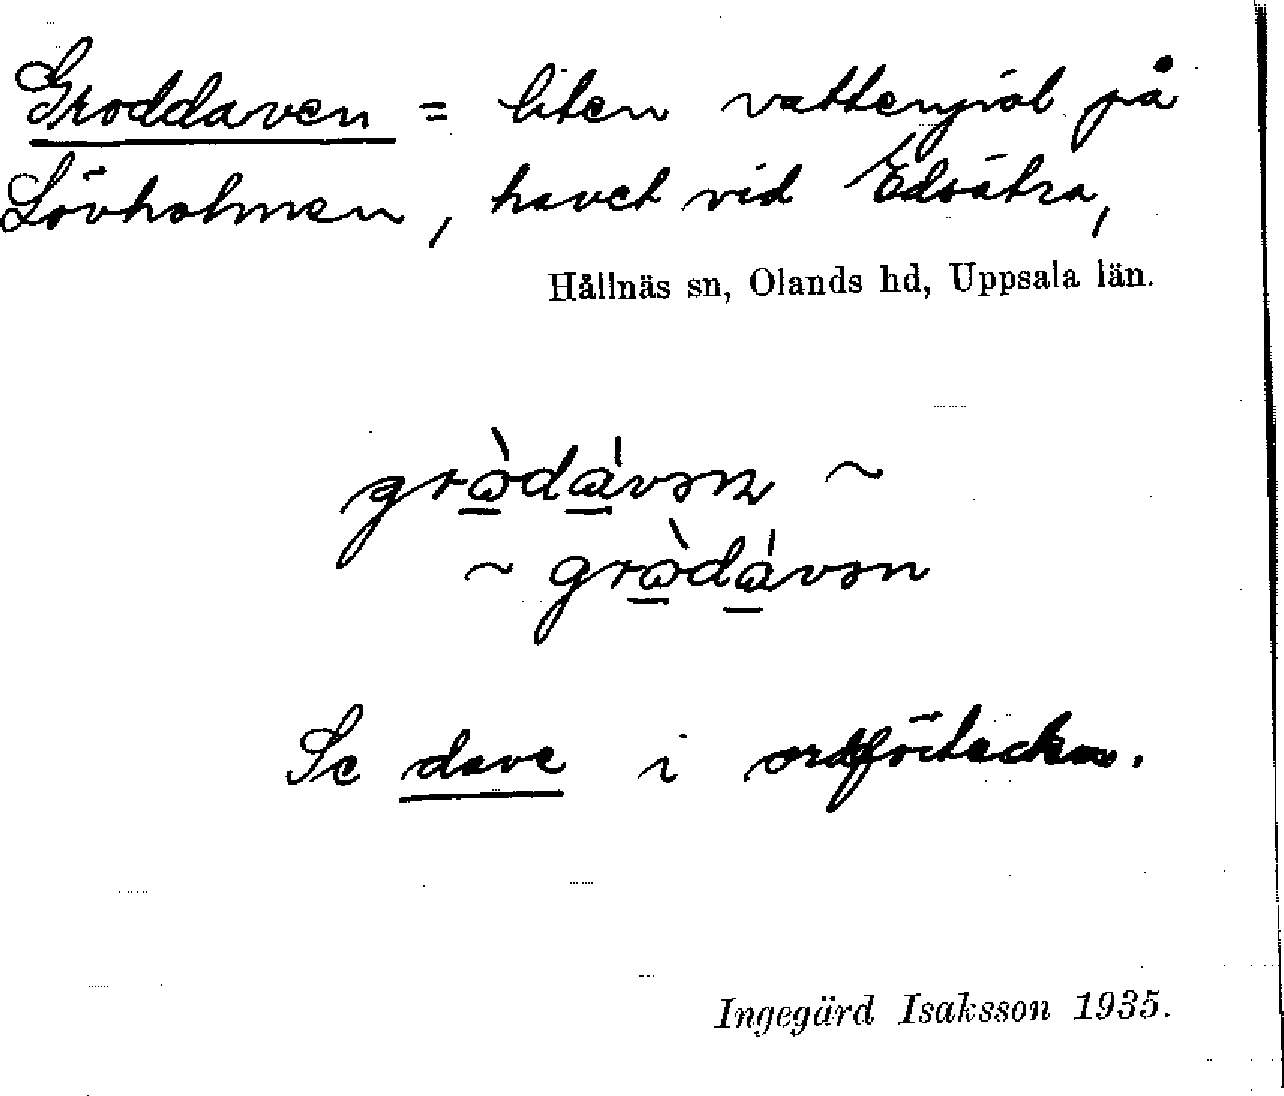 Groddaven = liten vattenpöl på
Lövholmen, havet vid Edsätra,
Hållnäs sn, Olands hd, Uppsala län.
grò̱da̱̍vən ~
~ grò̱da̱̍vən
Se dave i ordförteckn.
Ingegärd Isaksson 1935.